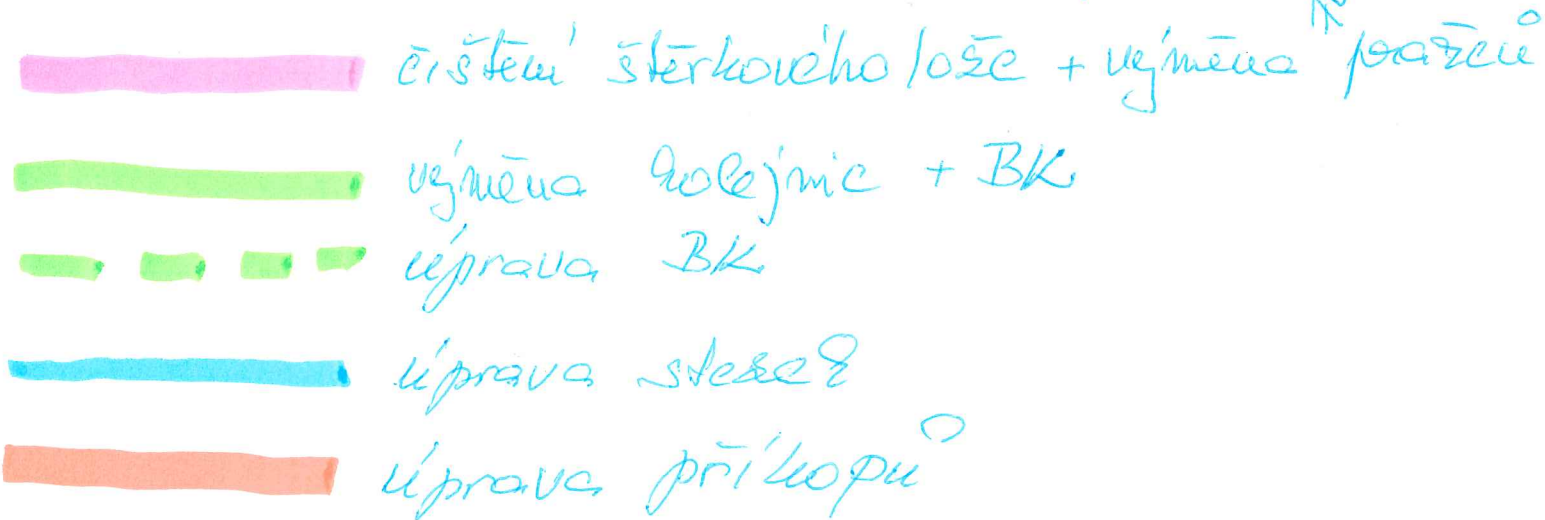 čištění štěrkového lože + výměna pražců
výměna kolejnic + BK
úprava BK
úprava stezek
úprava příkopů